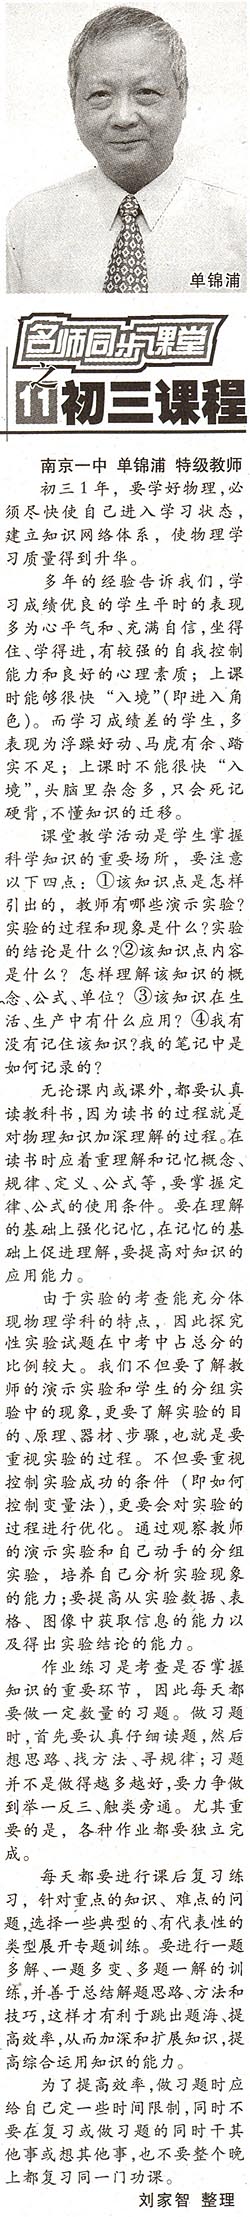 单锦浦
名师同步课堂
之
11 初三课程
南京一中 单锦浦 特级教师
初三1年，要学好物理,必
须尽快使自己进入学习状态,
建立知识网络体系，使物理学
习质量得到升华。
多年的经验告诉我们,学
习成绩优良的学生平时的表现
多为心平气和、充满自信,坐得
住、学得进,有较强的自我控制
能力和良好的心理素质；上课
时能够很快“入境”(即进入角
色)。而学习成绩差的学生,多
表现为浮躁好动、马虎有余、踏
实不足；上课时不能很快“入
境”,头脑里杂念多,只会死记
硬背,不懂知识的迁移。
课堂教学活动是学生掌握
科学知识的重要场所，要注意
以下四点：①该知识点是怎样
引出的，教师有哪些演示实验?
实验的过程和现象是什么?实验
的结论是什么?②该知识点内容
是什么？怎样理解该知识的概
念、公式、单位？③该知识在生
活、生产中有什么应用？④我有
没有记住该知识?我的笔记中是
如何记录的?
无论课内或课外,都要认真
读教科书,因为读书的过程就是
对物理知识加深理解的过程。在
读书时应着重理解和记忆概念、
规律、定义、公式等,要掌握定
律、公式的使用条件。要在理解
的基础上强化记忆,在记忆的基
础上促进理解,要提高对知识的
应用能力。
由于实验的考查能充分体
现物理学科的特点，因此探究
性实验试题在中考中占总分的
比例较大。我们不但要了解教
师的演示实验和学生的分组实
验中的现象,更要了解实验的目
的、原理、器材、步骤,也就是要
重视实验的过程。不但要重视
控制实验成功的条件（即如何
控制变量法),更要会对实验的
过程进行优化。通过观察教师
的演示实验和自己动手的分组
实验，培养自己分析实验现象
的能力;要提高从实验数据、表
格、图像中获取信息的能力以
及得出实验结论的能力。
作业练习是考查是否掌握
知识的重要环节，因此每天都
要做一定数量的习题。做习题
时,首先要认真仔细读题,然后
想思路、找方法、寻规律;习题
并不是做得越多越好,要力争做
到举一反三、触类旁通。尤其重
要的是，各种作业都要独立完
成。
每天都要进行课后复习练
习，针对重点的知识、难点的问
题,选择一些典型的、有代表性的
类型展开专题训练。要进行一题
多解、一题多变、多题一解的训
练,并善于总结解题思路、方法和
技巧,这样才有利于跳出题海、提
高效率,从而加深和扩展知识,提
高综合运用知识的能力。
为了提高效率,做习题时应
给自己定一些时间限制,同时不
要在复习或做习题的同时干其
他事或想其他事,也不要整个晚
上都复习同一门功课。
刘家智 整理